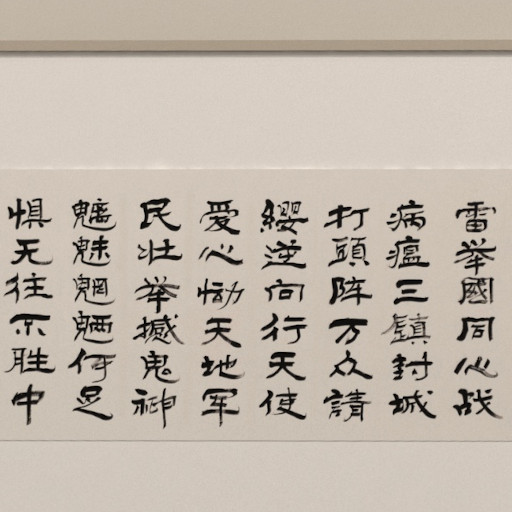 雷举國同心战
病瘟三鎮封城
打頭阵万众請
纓逆向行天使
爱心恸天地军
民壮举撼鬼神
魑魅魍魉何足
惧无往不胜中